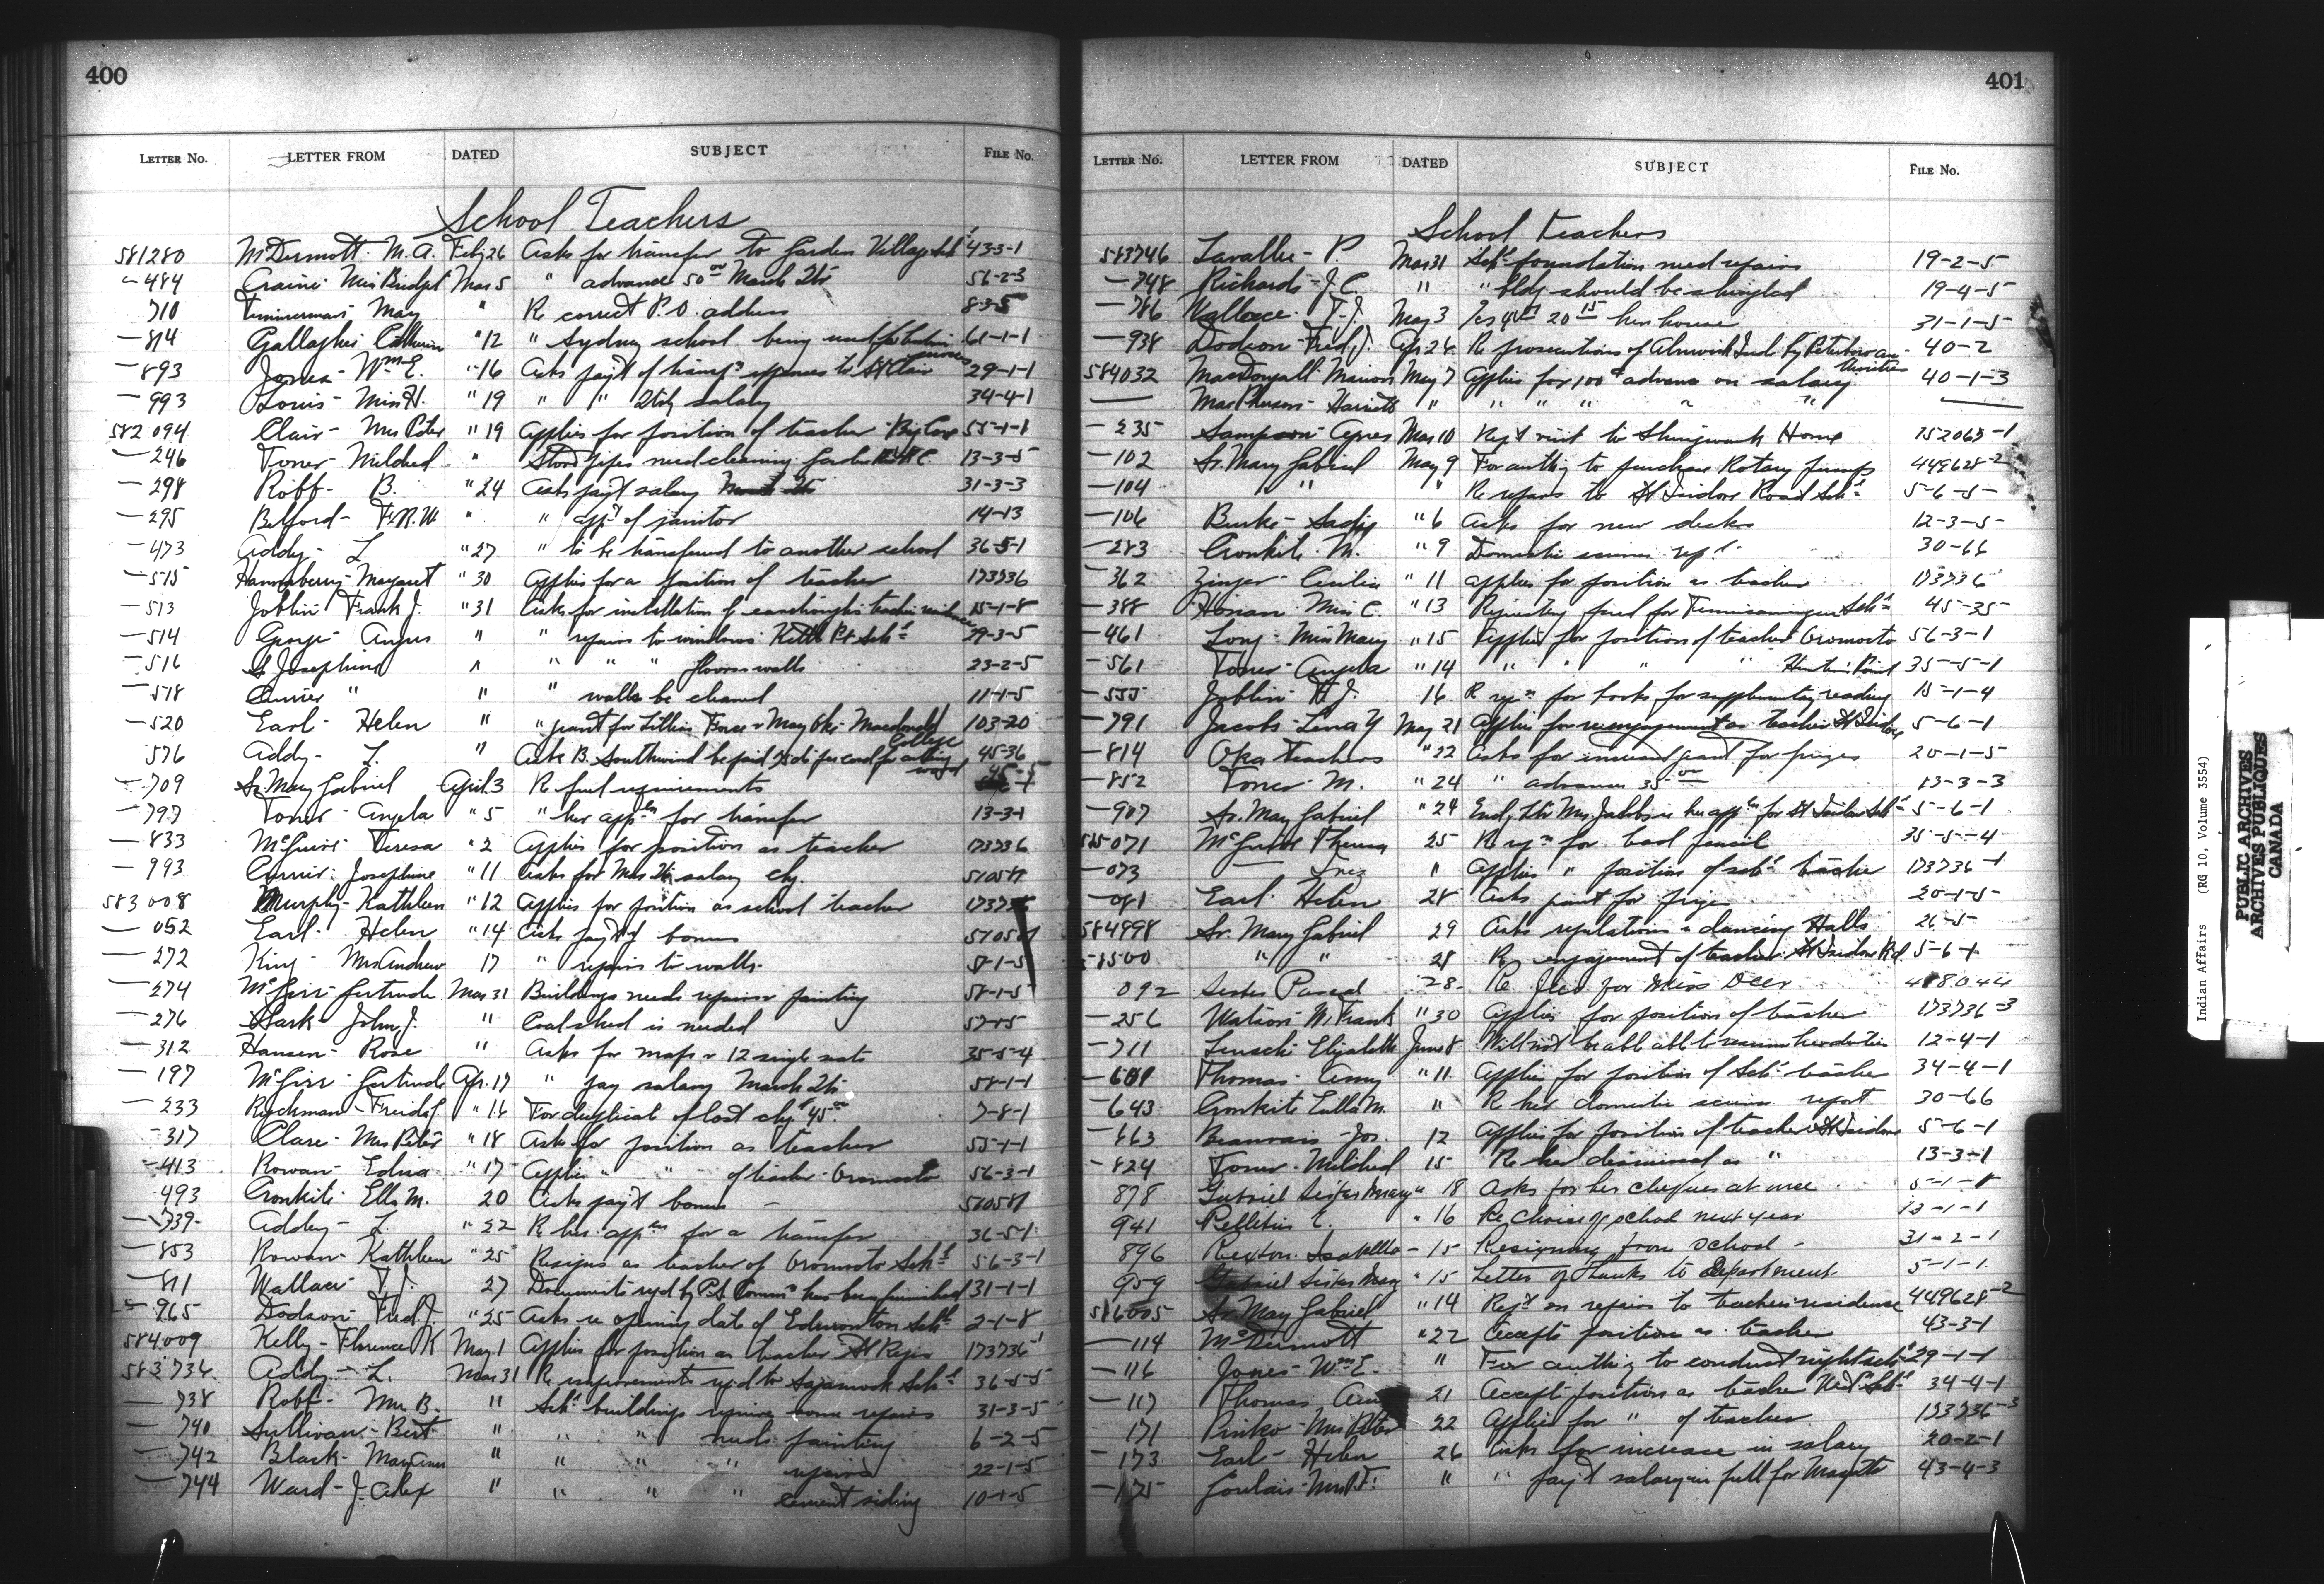 400
LETTER No. LETTER FROM DATED SUBJECT FILE No.
School Teachers
581280 McDermott M. A. Feb 26 Asks for transfer to Garden Village Schl 43-3-1
" 484 Miss Bridget Mar 5 " advance 50 00 March 56-2-3
710 May " Re correct P.O. address 8-3-5
— 814 Gallagher Catherine " 12 " Sydney school being used for 61-1-1
— 893 Jones - Wm E. " 16 Asks payt of transp. expenses to St Clair 29-1-1
— 993 Louis - Miss H. " 19 " " salary 34-4-1
582094 Clair - Mrs Peter " 19 Applies for position of teacher Big Cove 55-1-1
— 246 Toner - Mildred " pipes need cleaning Garden 13-3-5
— 298 Robb - B. " 24 Asks payt salary 31-3-3
— 295 Belford - F.R.W. " " of janitor 14-13
— 473 Addy - L " 27 " to be transferred to another school 36-5-1
— 515 Margaret " 30 Applies for a position of teacher 173736
— 513 Joblin Frank J. " 31 Asks for installation of teachers 15-1-8
— 514 George Angus " " repairs to windows Kettle Pt Schl 29-3-5
— 516 Sr Josephine " " " " floors walls 23-2-5
— 518 Currier " " " walls be cleaned 11-1-5
— 520 Earl - Helen " " grant for Lillian May Macdonald College 103-20
576 Addy - L. " Asks B. Southwind be paid for cord for 45-36
— 709 Sr Mary Gabriel April 3 Re fuel requirements
— 797 Toner - Angela " 5 " her appn for transfer 13-3-1
— 833 McGuire Teresa " 2 Applies for position as teacher 173736
— 993 Currier Josephine " 11 Asks for Mar salary chq. 510581
583008 Murphy - Kathleen " 12 Applies for position as school teacher
— 052 Earl - Helen " 14 Asks payt of bonus
— 272 King - Mrs Andrew 17 " repairs to walls 8-1-5
— 274 Gertrude Mar 31 Buildings needs repairs painting 58-1-5
— 276 John J. " Coal shed is needed
— 312 Hansen - Rose " Asks for maps & 12 single seats 35-5-4
— 197 Gertrude Apr. 17 " pay salary March 58-1-1
— 233 Ryckman - " 16 For duplicate of lost chq 45 00 7-8-1
— 317 Clare - Mrs Peter " 18 Asks for position as teacher 55-1-1
— 413 Rowan - Edna " 17 Applies " " of teacher Oromocto 56-3-1
493 Cronkite - Ella M. 20 Asks payt bonus — 510581
— 739 Addy - L. " 22 Re his appn for a transfer 36-5-1
— 853 Rowan - Kathleen " 25 Resigns as teacher of Oromocto Schl 56-3-1
— 811 Wallace T. J. 27 Documents reqd by P.S. Comm has been furnished 31-1-1
— 965 Dodson Fred J. " 25 Asks re opening date of Edmonton Schl 2-1-8
584009 Kelly - Florence K May 1 Applies for position as teacher St Regis 173736-1
583736 Addy - L. Mar 31 Re improvements reqd to Sagamook Schl 36-5-5
— 738 Robb - Mrs B. " Schl buildings require some repairs 31-3-5
— 740 Sullivan - Bert " " " needs painting 6-2-5
— 742 Black - Mary Ann " " " " repairs 22-1-5
— 744 Ward - J. Alex " " " " cement siding 10-1-5
401
LETTER No. LETTER FROM DATED SUBJECT FILE No.
School Teachers
583746 Lavallee - P. Mar 31 Schl foundation need repairs 19-2-5
— 748 Richards - J. C. " " bldg should be shingled 19-4-5
— 786 Wallace T. J. May 3 hen house 31-1-5
— 938 Dodson Fred J. Apr 26 Re prosecutions of Alnwick Inds by Peterboro authorities 40-2
584032 MacDougall Marion May 7 Applies for 100 advance on salary 40-1-3
— MacPherson Harriett " " " " " " —
— 235 Sampson Agnes Mar 10 Rept visit to Shingwauk Home 152063-1
— 102 Sr. Mary Gabriel May 9 For authy to purchase Rotary pumps 449628-2
— 104 " " " Re repairs to St Isidore Road Schl 5-6-5
— 106 Burke - Sadie " 6 Asks for new desks 12-3-5
— 283 Cronkite M. " 9 Domestic science rept 30-66
— 362 Zinger - Cecilia " 11 Applies for position as teacher 173736
— 388 Honan Miss C. " 13 Requesting fuel for Temiscamingue Schl 45-35
— 461 Long - Miss Mary " 15 Applies for position of teacher Oromocto 56-3-1
— 561 Toner - Angela " 14 " " " " Hunter's Point 35-5-1
— 555 Joblin H J. 16 R for books for supplementary reading 15-1-4
— 791 Jacobs - Lena Y May 21 Applies for reengagement as teacher St Isidore 5-6-1
— 814 Oka teachers " 22 Asks for increased grant for prizes 20-1-5
— 852 Toner M. " 24 " advance 35 00 13-3-3
— 907 Sr. Mary Gabriel " 24 Encl. ltr Mrs Jacobs re her appn for St Isidore Schl 5-6-1
585071 McGuire Theresa 25 for lead pencil 35-5-4
— 073 — Inez " Applies " position of schl teacher 173736-1
— 081 Earl Helen 28 Asks grant for prizes 20-1-5
584998 Sr. Mary Gabriel 29 Asks regulations re dancing Halls 26-5
" " 28 Re engagement of teacher St Isidore Rd. 5-6-1
092 Sister Pascal 28 Re for Miss Deer 488044
— 256 Watson W. Frank " 30 Applies for position of teacher 173736-3
— 711 Elizabeth June 8 Will not be able able to resume her duties 12-4-1
— 601 Thomas Amy " 11 Applies for position of Schl teacher 34-4-1
— 643 Cronkite Ella M. " Re her domestic science report 30-66
— 663 Beauvais Jos. 12 Applies for position of teacher St Isidore 5-6-1
— 824 Toner - Mildred 15 Re her dismissal as " 13-3-1
878 Gabriel Sister Mary " 18 Asks for her cheques at once 5-1-8
941 Pelletier E. " 16 Re choice of school next year 13-1-1
896 Rexton Isabella - 15 Resigning from School - 31-2-1
959 Gabriel Sister Mary " 15 Letter of thanks to Department. 5-1-1
586005 Sr Mary Gabriel " 14 Rept on repairs to teacher's residence 449628-2
— 114 McDermott " 22 Accepts position as teacher 43-3-1
— 116 Jones - Wm E. " For authy to conduct night schl 29-1-1
— 117 Thomas 21 Accepts position as teacher Schl 34-4-1
171 Pinko - Mrs Peter 22 Applies for " of teacher 173736-3
— 173 Earl - Helen 26 Asks for increase in salary 20-2-1
— 175 Goulais - Mrs F. " " payt salary in full for Mar qtr 43-4-3
Indian Affairs (RG 10, Volume 3554)
PUBLIC ARCHIVES
ARCHIVES PUBLIQUES
CANADA